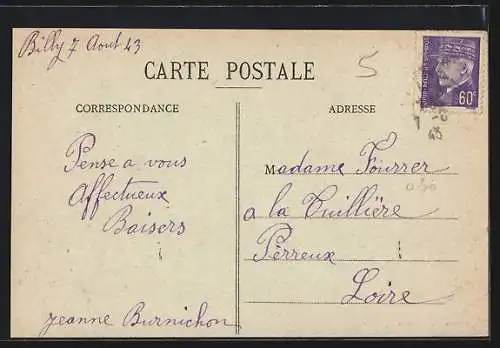 Billy 7 Aout 43
5
CARTE POSTALE
60c
CORRESPONDANCE
ADRESSE
Pense a vous
Affectueux
Baisers
Jeanne Burnichon
Madame Fourrer
a la Tuillière
Perreux
Loire